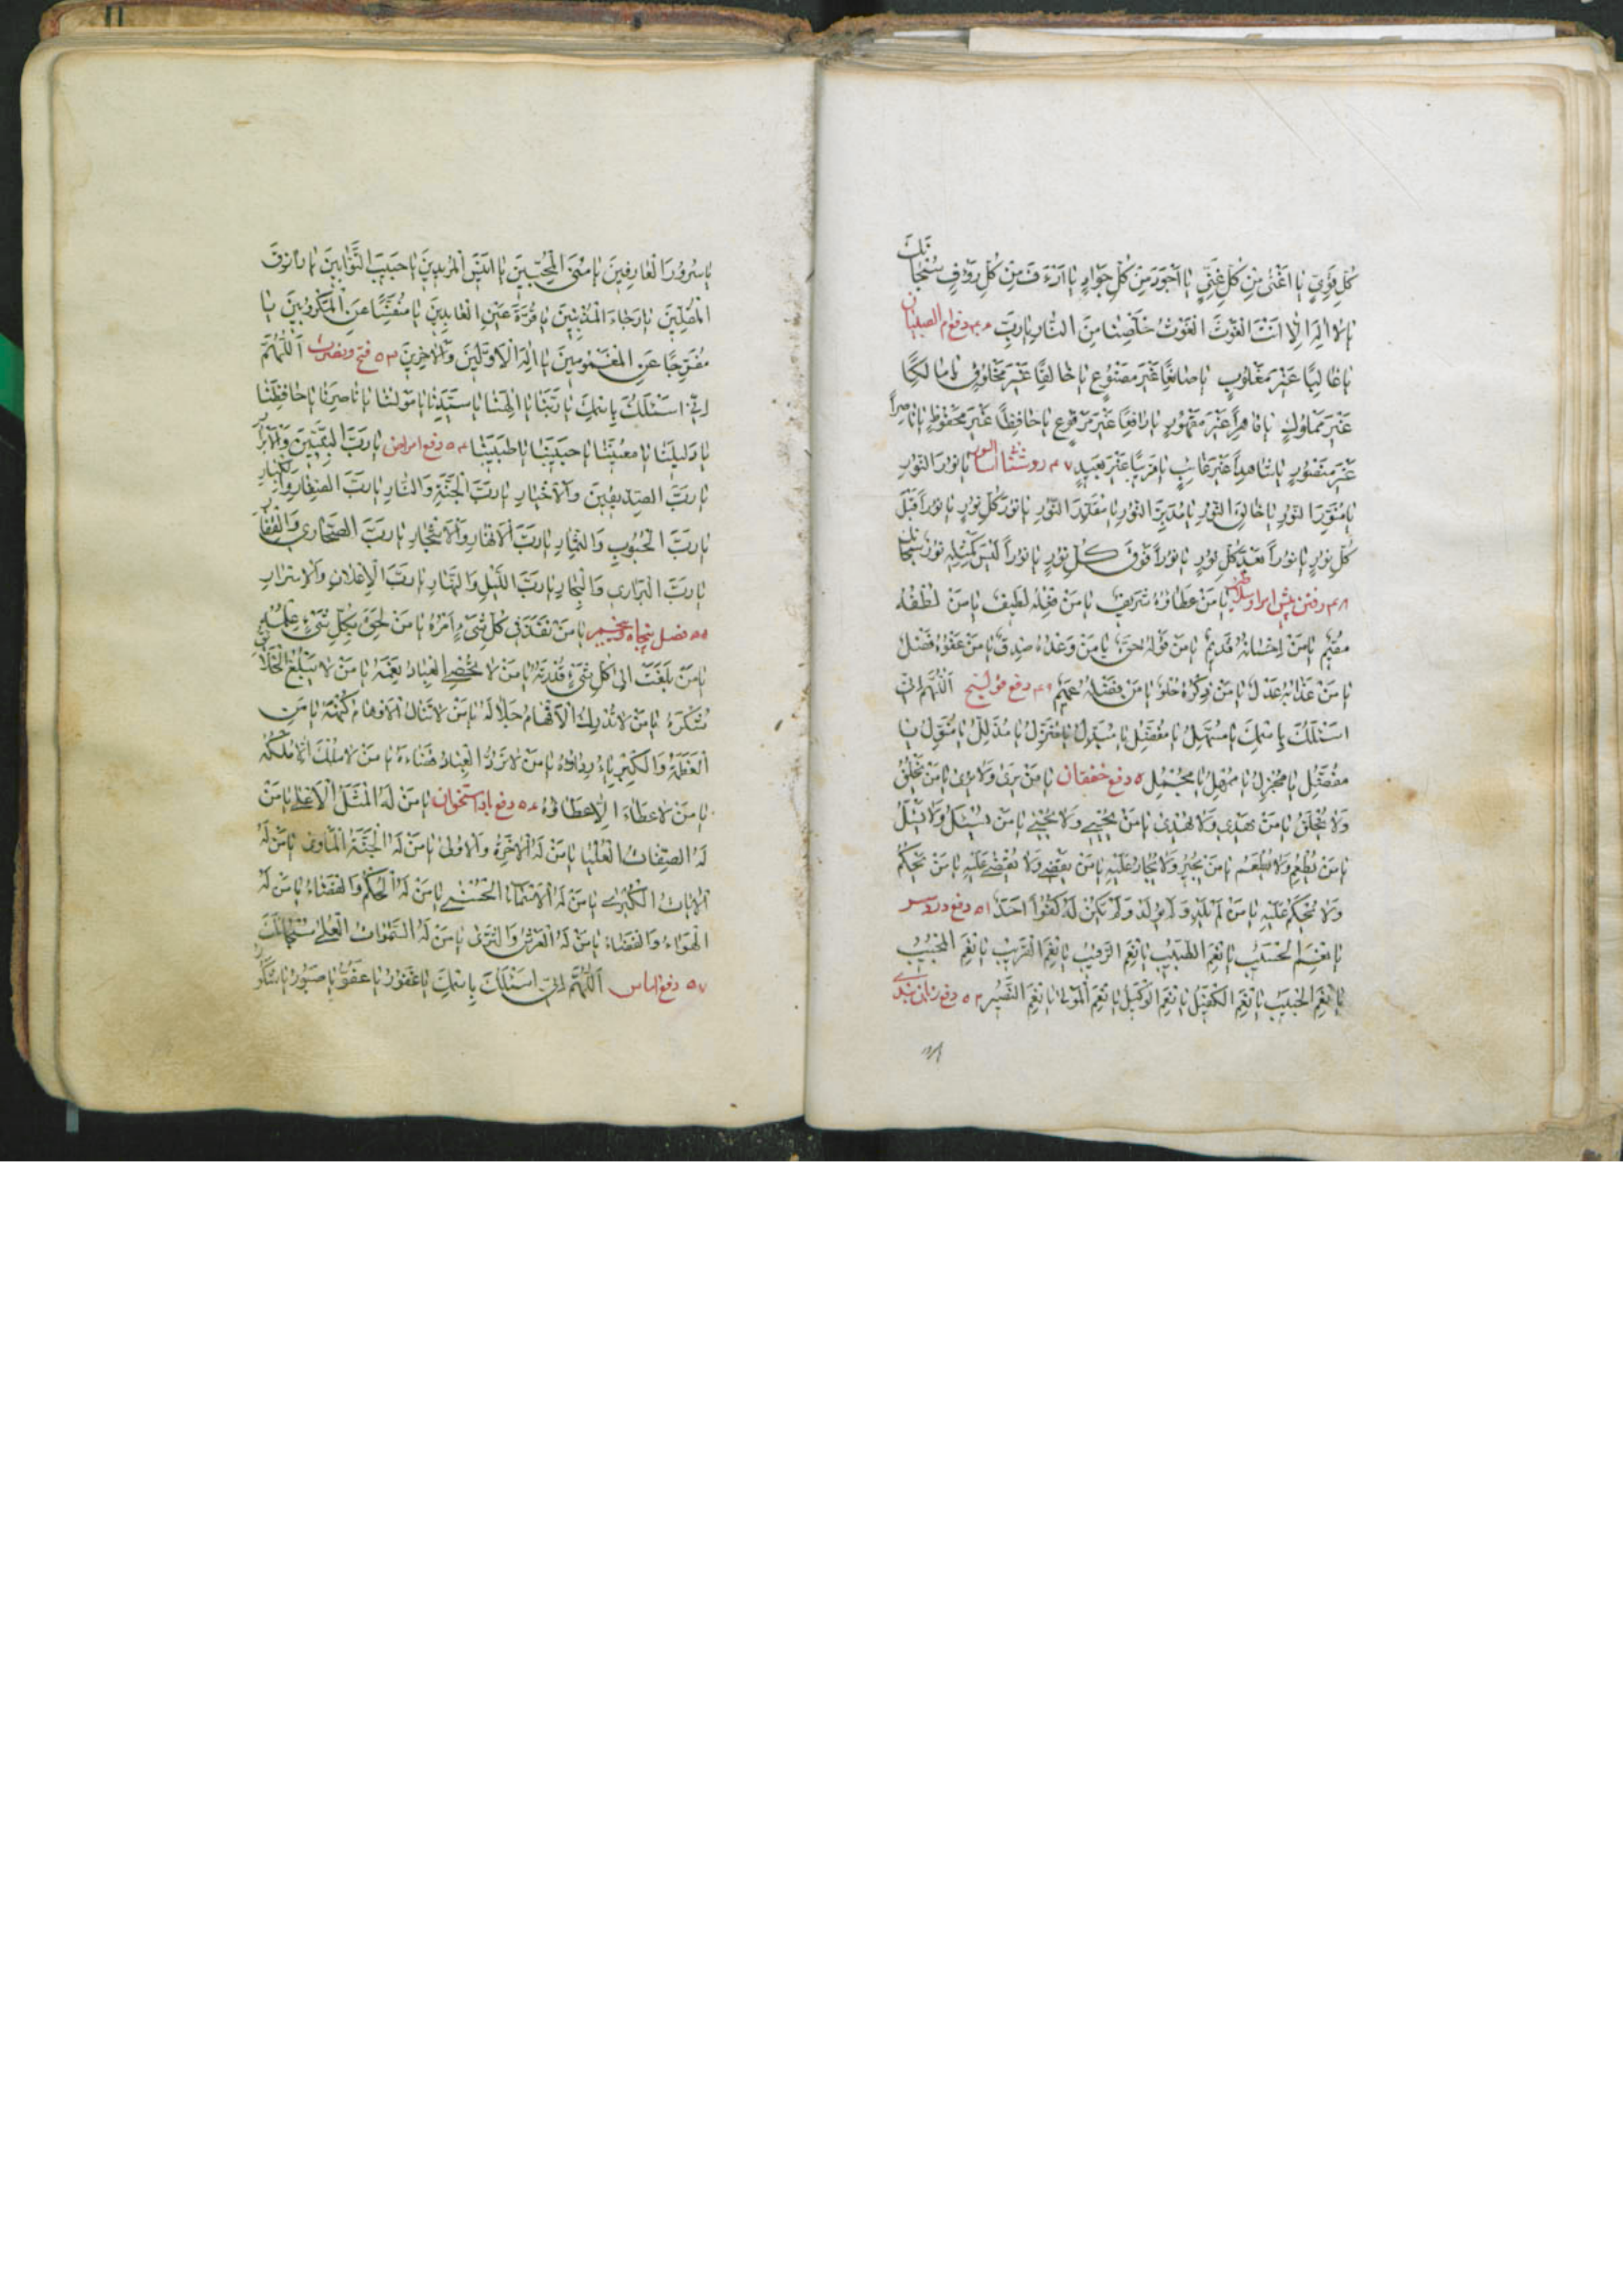 كُلِّ قَوِيٍّ يا اَغْنىٰ مِنْ كُلِّ غَنِيٍّ يا اَجْوَدَ مِنْ كُلِّ جَوادٍ يا اَرْءَفَ مِنْ كُلِّ رَؤُفٍ سُبْحانَكَ
يا لا اِلٰهَ اِلّا اَنْتَ الْغَوْثَ الْغَوْثَ خَلِّصْنا مِنَ النّارِ يا رَبِّ ۴۶ دفع ام الصبیان
يا غالِبًا غَيْرَ مَغْلُوبٍ يا صانِعًا غَيْرَ مَصْنُوعٍ يا خالِقًا غَيْرَ مَخْلُوقٍ يا مالِكًا
غَيْرَ مَمْلُوكٍ يا قاهِرًا غَيْرَ مَقْهُورٍ يا رافِعًا غَيْرَ مَرْفُوعٍ يا حافِظًا غَيْرَ مَحْفُوظٍ يا ناصِرًا
غَيْرَ مَنْصُورٍ يا شاهِدًا غَيْرَ غائِبٍ يا قَرِيبًا غَيْرَ بَعِيدٍ ۴۷ روشنائی يا نُورَ النُّورِ
يا مُنَوِّرَ النُّورِ يا خالِقَ النُّورِ يا مُدَبِّرَ النُّورِ يا مُقَدِّرَ النُّورِ يا نُورَ كُلِّ نُورٍ يا نُورًا قَبْلَ
كُلِّ نُورٍ يا نُورًا بَعْدَ كُلِّ نُورٍ يا نُورًا فَوْقَ كُلِّ نُورٍ يا نُورًا لَيْسَ كَمِثْلِهِ نُورٌ سُبْحانَكَ
۴۸ رفتن پیش امرا و سلاطین يا مَنْ عَطاؤُهُ شَرِيفٌ يا مَنْ فِعْلُهُ لَطِيفٌ يا مَنْ لُطْفُهُ
مُقِيمٌ يا مَنْ اِحْسانُهُ قَدِيمٌ يا مَنْ قَوْلُهُ حَقٌّ يا مَنْ وَعْدُهُ صِدْقٌ يا مَنْ عَفْوُهُ فَضْلٌ
يا مَنْ عَذابُهُ عَدْلٌ يا مَنْ ذِكْرُهُ حُلْوٌ يا مَنْ فَضْلُهُ عَمِيمٌ ۴۹ دفع قولنج اَللّٰهُمَّ اِنّي
اَسْئَلُكَ بِاسْمِكَ يا مُسَهِّلُ يا مُفَضِّلُ يا مُبَدِّلُ يا مُنَزِّلُ يا مُذَلِّلُ يا مُنَوِّلُ يا
مُفَضِّلُ يا مُجْزِلُ يا مُمْهِلُ يا مُجْمِلُ ۵۰ دفع خفقان يا مَنْ يَرىٰ وَلا يُرىٰ يا مَنْ يَخْلُقُ
وَلا يُخْلَقُ يا مَنْ يَهْدِي وَلا يُهْدىٰ يا مَنْ يُحْيِي وَلا يُحْيىٰ يا مَنْ يَسْئَلُ وَلا يُسْئَلُ
يا مَنْ يُطْعِمُ وَلا يُطْعَمُ يا مَنْ يُجِيرُ وَلا يُجارُ عَلَيْهِ يا مَنْ يَقْضِي وَلا يُقْضىٰ عَلَيْهِ يا مَنْ يَحْكُمُ
وَلا يُحْكَمُ عَلَيْهِ يا مَنْ لَمْ يَلِدْ وَلَمْ يُولَدْ وَلَمْ يَكُنْ لَهُ كُفُوًا اَحَدٌ ۵۱ دفع درد سر
يا نِعْمَ الْحَسِيبُ يا نِعْمَ الطَّبِيبُ يا نِعْمَ الرَّقِيبُ يا نِعْمَ الْقَرِيبُ يا نِعْمَ الْمُجِيبُ
يا نِعْمَ الْحَبِيبُ يا نِعْمَ الْكَفِيلُ يا نِعْمَ الْوَكِيلُ يا نِعْمَ الْمَوْلىٰ يا نِعْمَ النَّصِيرُ ۵۲ دفع زبان بندی
يا سُرُورَ الْعارِفِينَ يا مُنَى الْمُحِبِّينَ يا اَنِيسَ الْمُرِيدِينَ يا حَبِيبَ التَّوّابِينَ يا رازِقَ
الْمُقِلِّينَ يا رَجاءَ الْمُذْنِبِينَ يا قُرَّةَ عَيْنِ الْعابِدِينَ يا مُنَفِّسًا عَنِ الْمَكْرُوبِينَ يا
مُفَرِّجًا عَنِ الْمَغْمُومِينَ يا اِلٰهَ الْاَوَّلِينَ وَالْاٰخِرِينَ ۵۳ فتح و نصرت اَللّٰهُمَّ
اِنّي اَسْئَلُكَ بِاسْمِكَ يا رَبَّنا يا اِلٰهَنا يا سَيِّدَنا يا مَوْلٰنا يا ناصِرَنا يا حافِظَنا
يا دَلِيلَنا يا مُعِينَنا يا حَبِيبَنا يا طَبِيبَنا ۵۴ دفع امراض يا رَبَّ النَّبِيِّينَ وَالْاَبْرارِ
يا رَبَّ الصِّدِّيقِينَ وَالْاَخْيارِ يا رَبَّ الْجَنَّةِ وَالنّارِ يا رَبَّ الصِّغارِ وَالْكِبارِ
يا رَبَّ الْحُبُوبِ وَالثِّمارِ يا رَبَّ الْاَنْهارِ وَالْاَشْجارِ يا رَبَّ الصَّحارِي وَالْقِفارِ
يا رَبَّ الْبَرارِي وَالْبِحارِ يا رَبَّ اللَّيْلِ وَالنَّهارِ يا رَبَّ الْاِعْلانِ وَالْاَسْرارِ
۵۵ فصل پنجاه و پنجم يا مَنْ نَفَذَ فِي كُلِّ شَيْءٍ اَمْرُهُ يا مَنْ لَحِقَ بِكُلِّ شَيْءٍ عِلْمُهُ
يا مَنْ بَلَغَتْ اِلىٰ كُلِّ شَيْءٍ قُدْرَتُهُ يا مَنْ لا يُحْصِي الْعِبادُ نِعَمَهُ يا مَنْ لا يَبْلُغُ الْخَلائِقُ
شُكْرَهُ يا مَنْ لا تُدْرِكُ الْاَفْهامُ جَلالَهُ يا مَنْ لا تَنالُ الْاَوْهامُ كُنْهَهُ يا مَنِ
الْعَظَمَةُ وَالْكِبْرِياءُ رِداؤُهُ يا مَنْ لا تَرُدُّ الْعِبادُ قَضاءَهُ يا مَنْ لا مُلْكَ اِلّا مُلْكُهُ
يا مَنْ لا عَطاءَ اِلّا عَطاؤُهُ ۵۶ دفع استخوان يا مَنْ لَهُ الْمَثَلُ الْاَعْلىٰ يا مَنْ
لَهُ الصِّفاتُ الْعُلْيا يا مَنْ لَهُ الْاٰخِرَةُ وَالْاُولىٰ يا مَنْ لَهُ الْجَنَّةُ الْمَأْوىٰ يا مَنْ لَهُ
الْاٰياتُ الْكُبْرىٰ يا مَنْ لَهُ الْاَسْماءُ الْحُسْنىٰ يا مَنْ لَهُ الْحُكْمُ وَالْقَضاءُ يا مَنْ لَهُ
الْهَواءُ وَالْفَضاءُ يا مَنْ لَهُ الْعَرْشُ وَالثَّرىٰ يا مَنْ لَهُ السَّمٰواتُ الْعُلىٰ سُبْحانَكَ
۵۷ دفع اَللّٰهُمَّ اِنّي اَسْئَلُكَ بِاسْمِكَ يا غَفُورُ يا عَفُوُّ يا صَبُورُ يا شَكُورُ